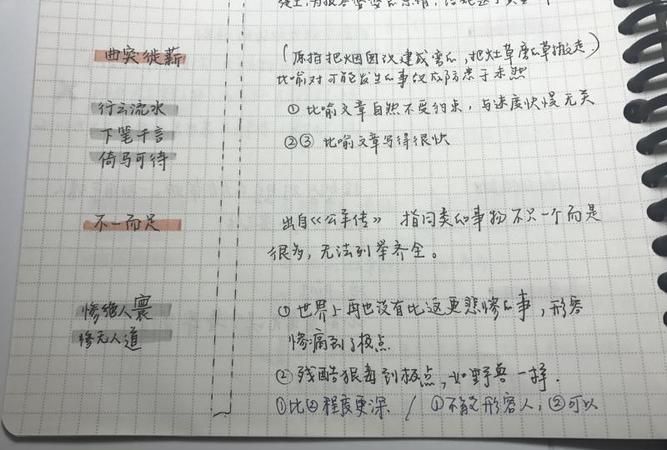 曲突徙薪 (原指把烟囱改建成弯的,把灶草磨的草搬走)
比喻对可能发生的事仪成防患于未然
行云流水 ① 比喻文章自然不受约束,与速度快慢无关
下笔千言 ②③ 比喻文章写得很快
倚马可待
不一而足 出自《公羊传》 指同类的事物不只一个而是
很多,无法列举齐全。
惨绝人寰 ① 世界上再也没有比这更悲惨的事,形容
惨无人道 惨痛到了极点
② 残酷狠毒到极点,如野兽一样.
①比② 程度更深 / ①不能形容人,②可以